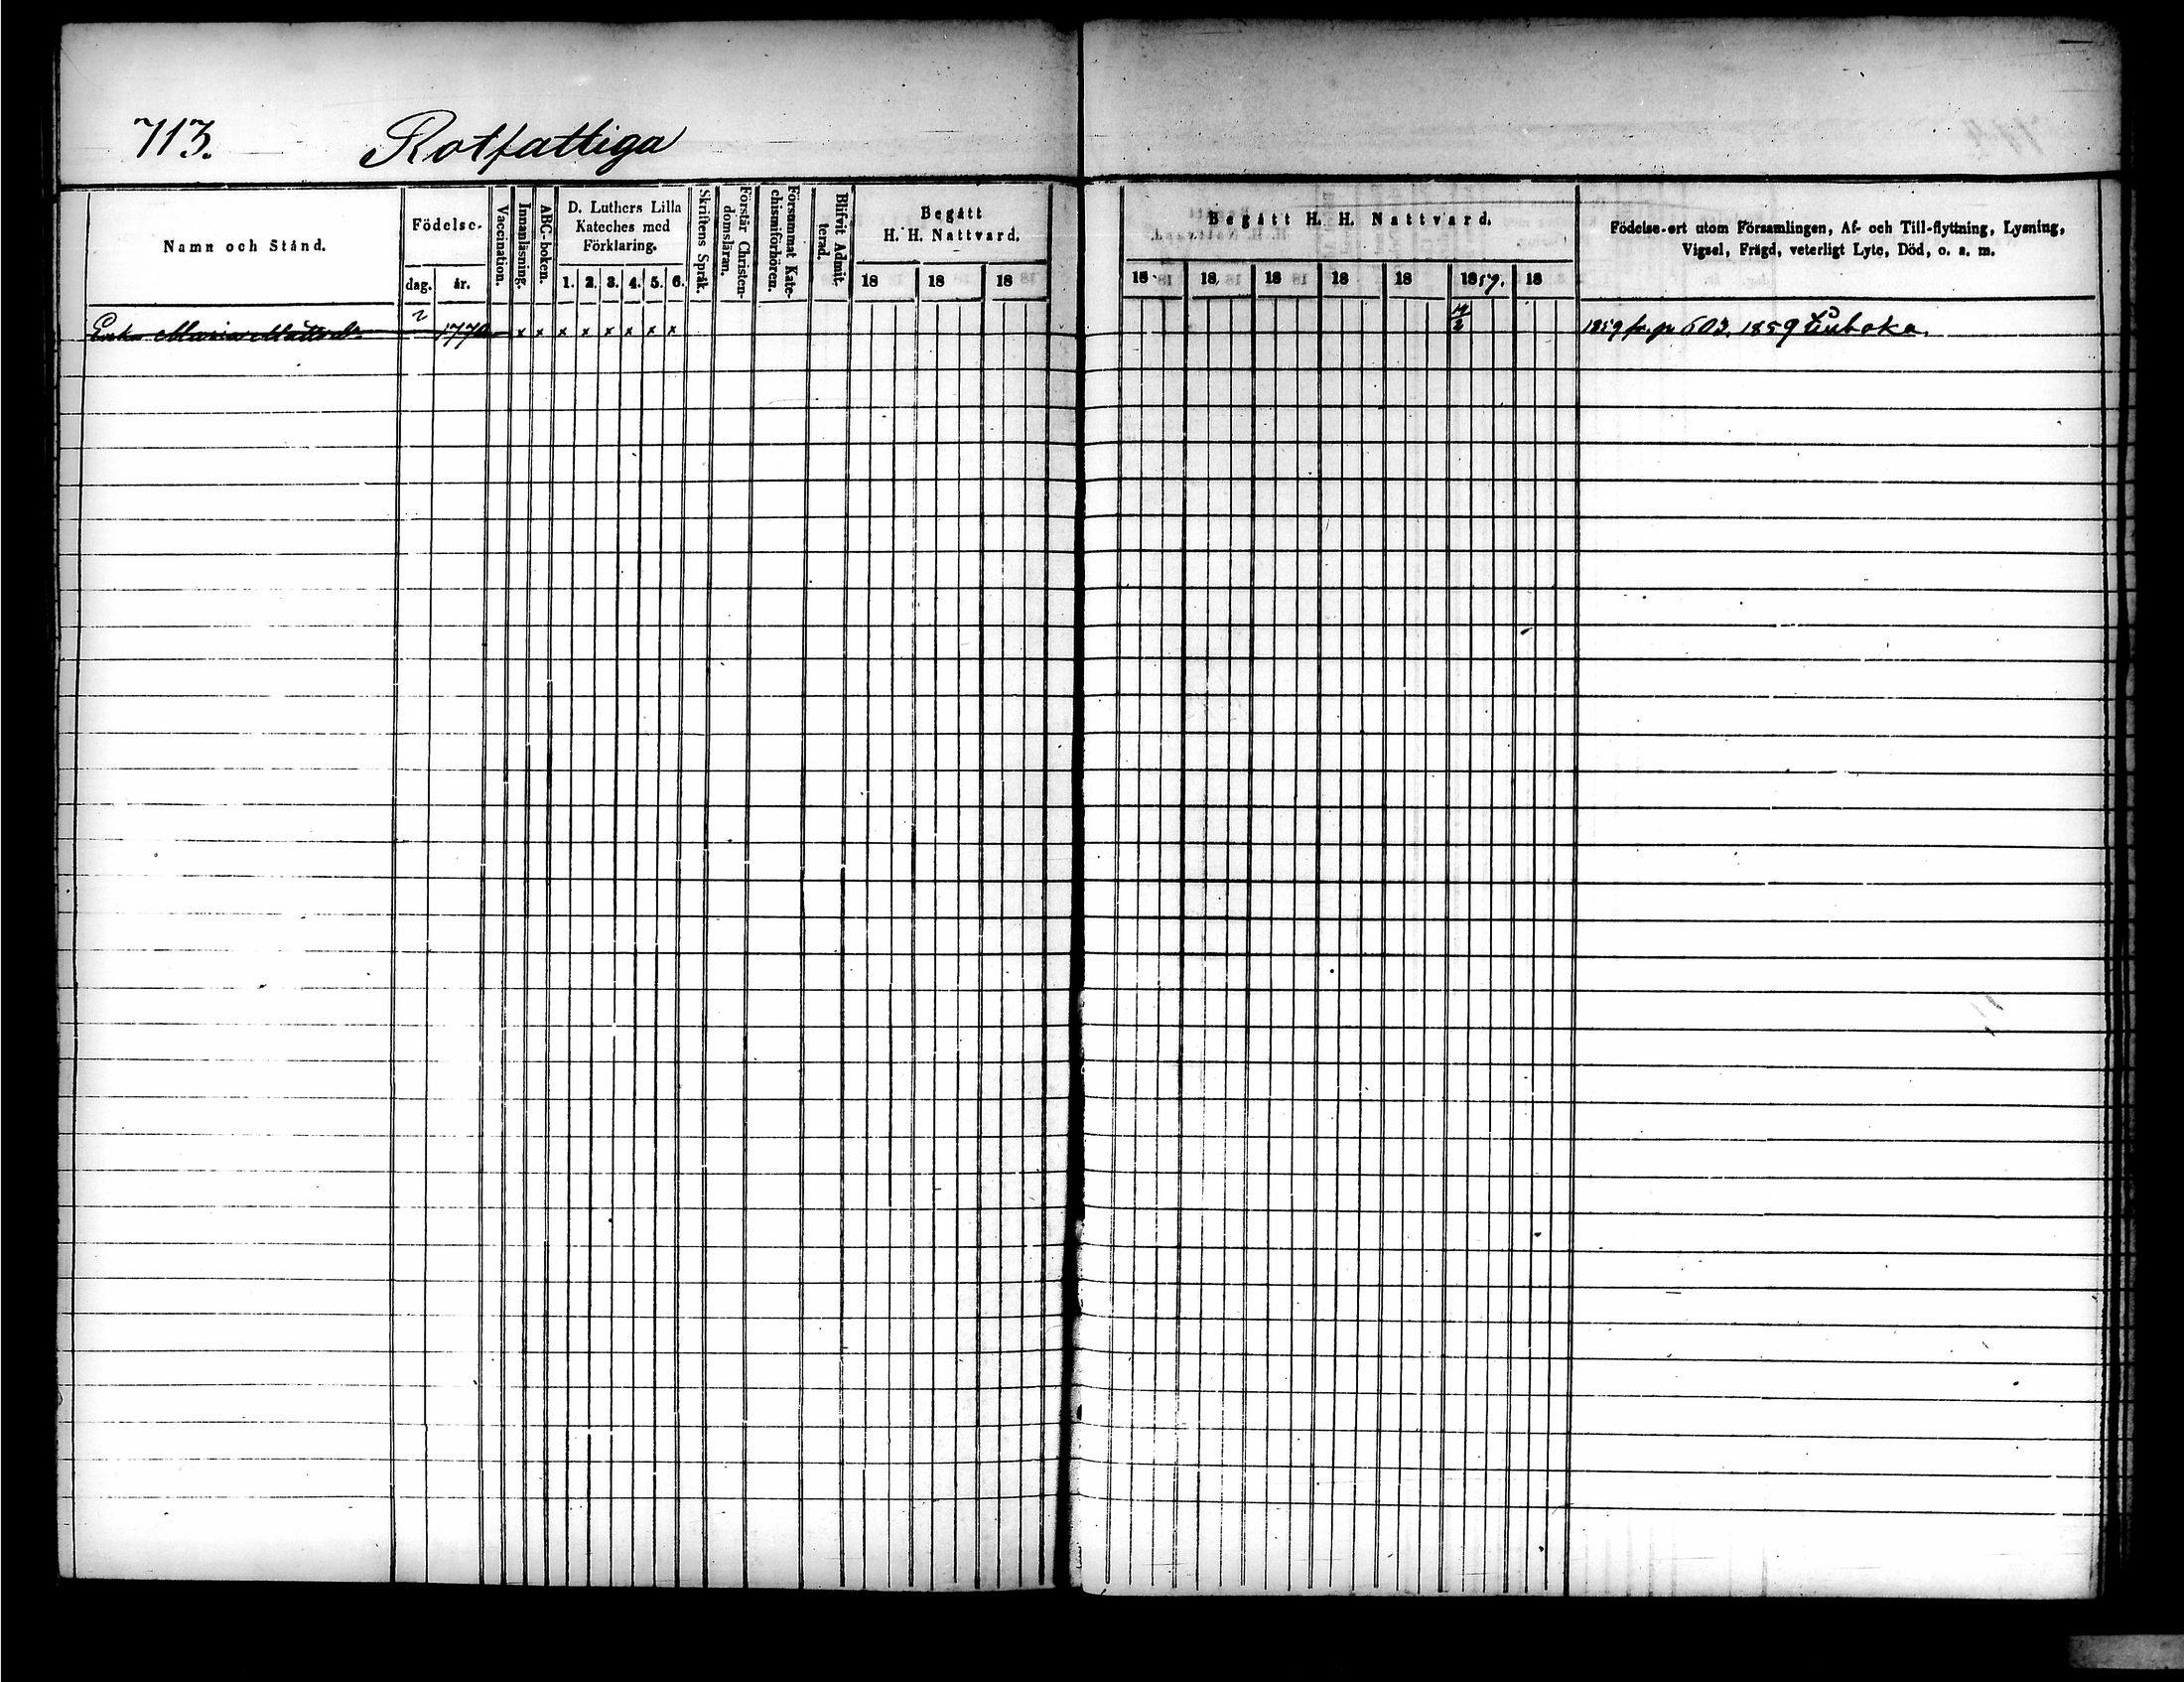 713. Rotfattiga
Namn och Stånd.
Födelse-
dag. år.
Vaccination.
Innanläsning.
ABC-boken.
D. Luthers Lilla
Kateches med
Förklaring.
1. 2. 3. 4. 5. 6.
Skriftens Språk.
Förstår Christen-
domsläran.
Försummat Kate-
chismiförhören.
Blifvit Admit-
terad.
Begått
H. H. Nattvard.
18 18 18
Begått H. H. Nattvard.
18 18 18 18 18 1859. 18
Födelse-ort utom Församlingen, Af- och Till-flyttning, Lysning,
Vigsel, Frägd, veterligt Lyte, Död, o. s. m.
Enka Maria x x x x x x x x 1859 fr. p. 603. 1859